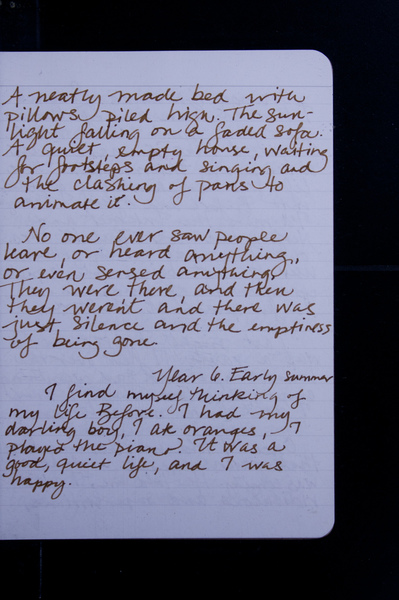 A neatly made bed with
pillows piled high. The sun-
light falling on a faded sofa.
A quiet, empty house, waiting
for footsteps and singing and
the clashing of pans to
animate it.
No one ever saw people
leave, or heard anything,
or even sensed anything.
They were there, and then
they weren't and there was
just silence and the emptiness
of being gone.
Year 6. Early summer
I find myself thinking of
my life Before. I had my
darling boy, I ate oranges, I
played the piano. It was a
good, quiet life, and I was
happy.